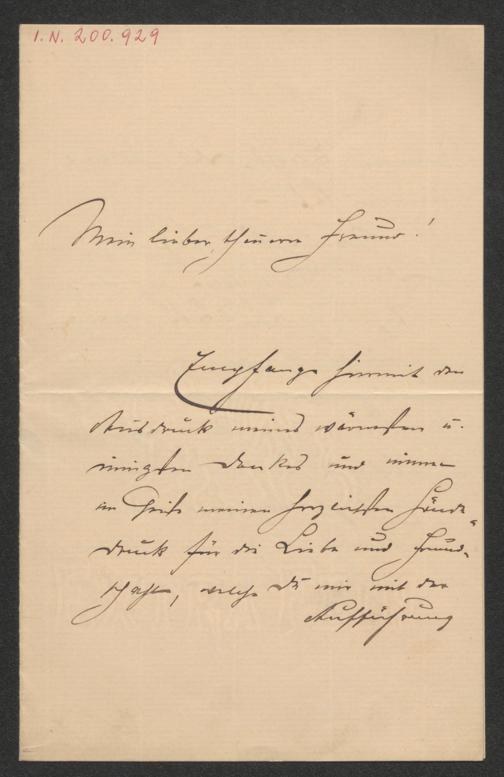 I.N. 200.929
Mein lieber, theurer Freund!
Empfange hiermit den
Ausdruck meines wärmsten u.
innigsten Dankes und nimm
im Geiste meinen herzlichsten Hände-
druck für die Liebe und Freund-
schaft, welche Du mir mit der
Aufführung